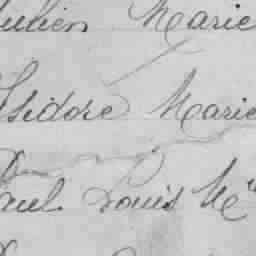 Julien Marie
Isidore Marie
Paul Louis M